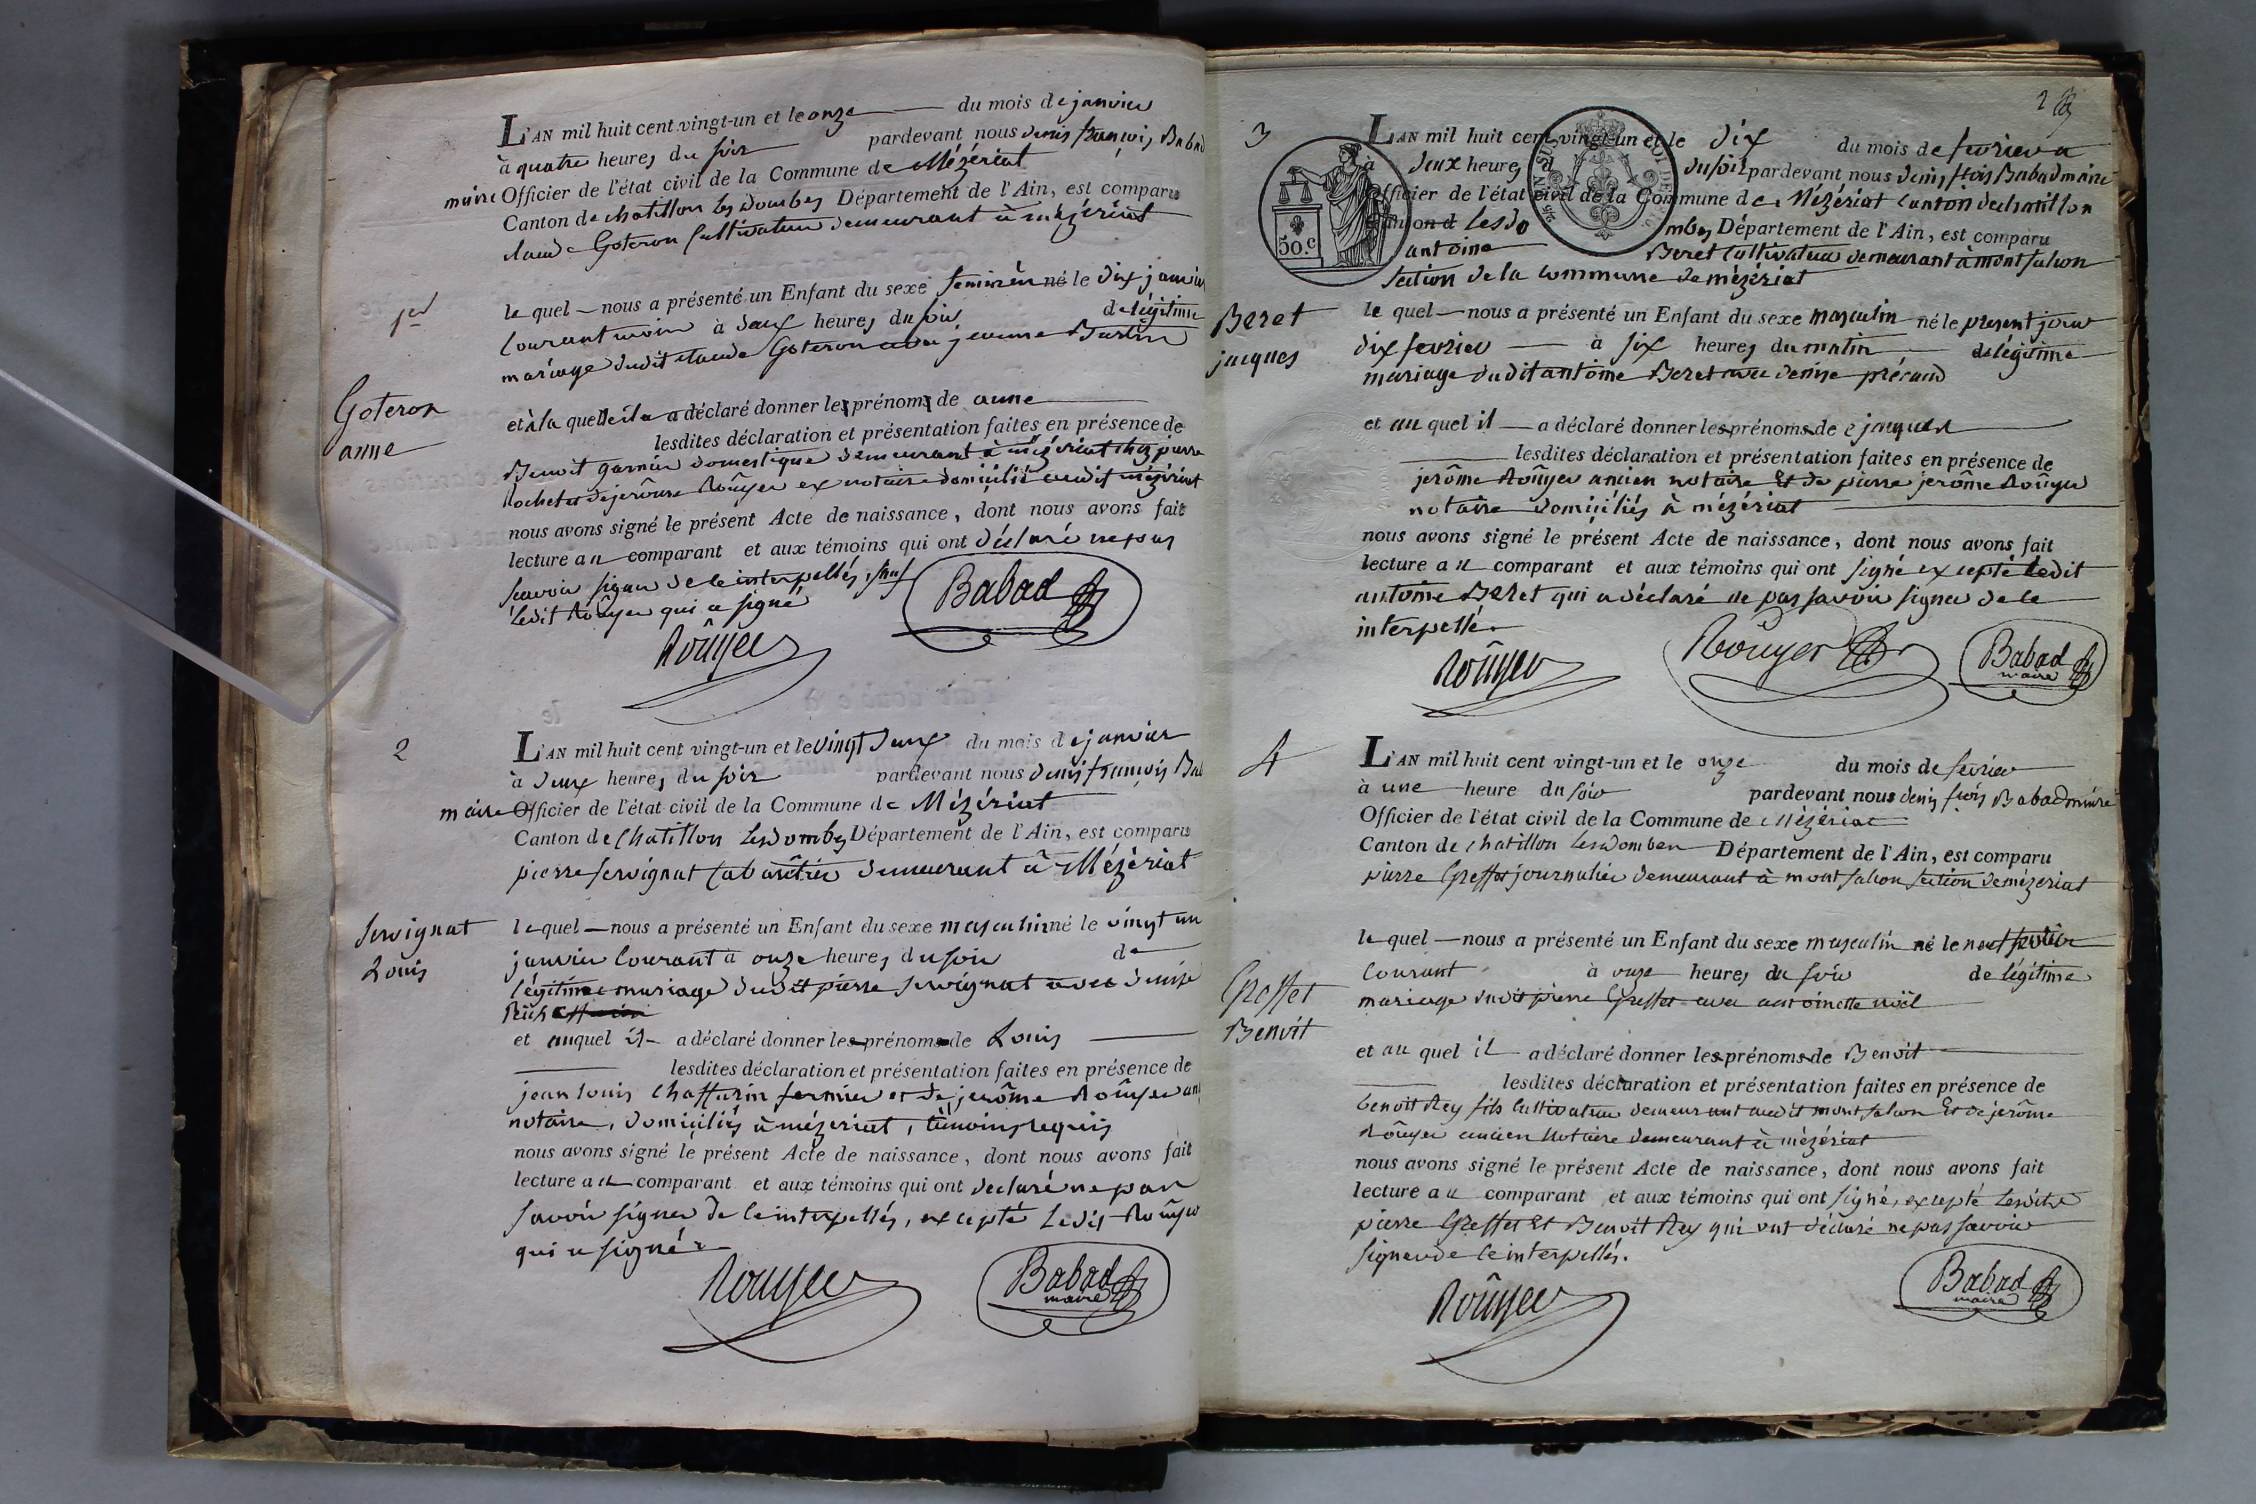 L'AN mil huit cent vingt-un et le onze du mois de janvier
à quatre heures du soir pardevant nous denis françois Babad
maire Officier de l'état civil de la Commune de Mézériat
Canton de chatillon les dombes Département de l'Ain, est comparu
claude Goteron Cultivateur demeurant à mézériat
1er
le quel nous a présenté un Enfant du sexe feminin né le dix janvier
Courant mois à deux heures du soir de légitime
mariage dudit claude Goteron avec jeanne
Goteron
anne
et à la quelle il a déclaré donner les prénoms de anne
lesdites déclaration et présentation faites en présence de
Benoit garnier domestique demeurant à mézériat chez pierre
Rochet et de jerôme Roûyer ex notaire domicilié audit mézériat
nous avons signé le présent Acte de naissance, dont nous avons fait
lecture au comparant et aux témoins qui ont déclaré ne pas
savoir signer de ce interpellés, sauf
ledit Roûyer qui a signé
Babad
Roûyer
2
L'AN mil huit cent vingt-un et le vingt deux du mois de janvier
à deux heures du soir pardevant nous denis françois Bab
maire Officier de l'état civil de la Commune de Mézériat
Canton de Chatillon les dombes Département de l'Ain, est comparu
pierre servignat Cabarêtier demeurant à Mézériat
Servignat
Louis
le quel nous a présenté un Enfant du sexe masculin né le vingt un
janvier Courant à onze heures du soir de
légitime mariage dudit pierre servignat avec denise
et auquel il a déclaré donner les prénoms de Louis
lesdites déclaration et présentation faites en présence de
jean louis Chaffurin fermier et de jerôme Roûyer an
notaire, domiciliés à mézériat, témoins requis
nous avons signé le présent Acte de naissance, dont nous avons fait
lecture au comparant et aux témoins qui ont declaré ne pas
savoir signer de ce interpellés, excepté ledit Roûyer
qui a signé
Rouyer
Babad
maire
2
3
L'AN mil huit cent vingt-un et le dix du mois de fevrier a
à deux heures d du soir pardevant nous denis fcois Babad maire
Officier de l'état civil de la Commune de Mézériat Canton de chatillon
Canton d les do mbes Département de l'Ain, est comparu
antoine Beret Cultivateur demeurant à montfalcon
section de la commune de mézériat
50.c
Beret
jacques
le quel nous a présenté un Enfant du sexe masculin né le present jour
dix fevrier à six heures du matin de légitime
mariage dudit antoine Beret avec denise précaud
et au quel il a déclaré donner les prénoms de jacques
lesdites déclaration et présentation faites en présence de
jerôme Roûyer ancien notaire Et de pierre jerôme Roûyer
notaire domiciliés à mézériat
nous avons signé le présent Acte de naissance, dont nous avons fait
lecture au comparant et aux témoins qui ont signé excepté ledit
antoine Beret qui a déclaré ne pas savoir signer de ce
interpellé.
Roûyer
Rouyer
Babad
maire
4
L'AN mil huit cent vingt-un et le onze du mois de fevrier
à une heure du soir pardevant nous denis fcois Babad maire
Officier de l'état civil de la Commune de Mézériat
Canton de chatillon les dombes Département de l'Ain, est comparu
pierre Greffet journalier demeurant à montfalcon section de mézeriat
Greffet
Benoit
le quel nous a présenté un Enfant du sexe masculin né le neuf fevrier
Courant à onze heures du soir de légitime
mariage dudit pierre Greffet avec antoinette noël
et au quel il a déclaré donner les prénoms de Benoit
lesdites déclaration et présentation faites en présence de
benoit Rey fils Cultivateur demeurant audit montfalcon Et de jerôme
Roûyer ancien Notaire demeurant à mézériat
nous avons signé le présent Acte de naissance, dont nous avons fait
lecture au comparant et aux témoins qui ont signé, excepté lesdits
pierre Greffet Et Benoit Rey qui ont déclaré ne pas savoir
signer de ce interpellés.
Roûyer
Babad
maire